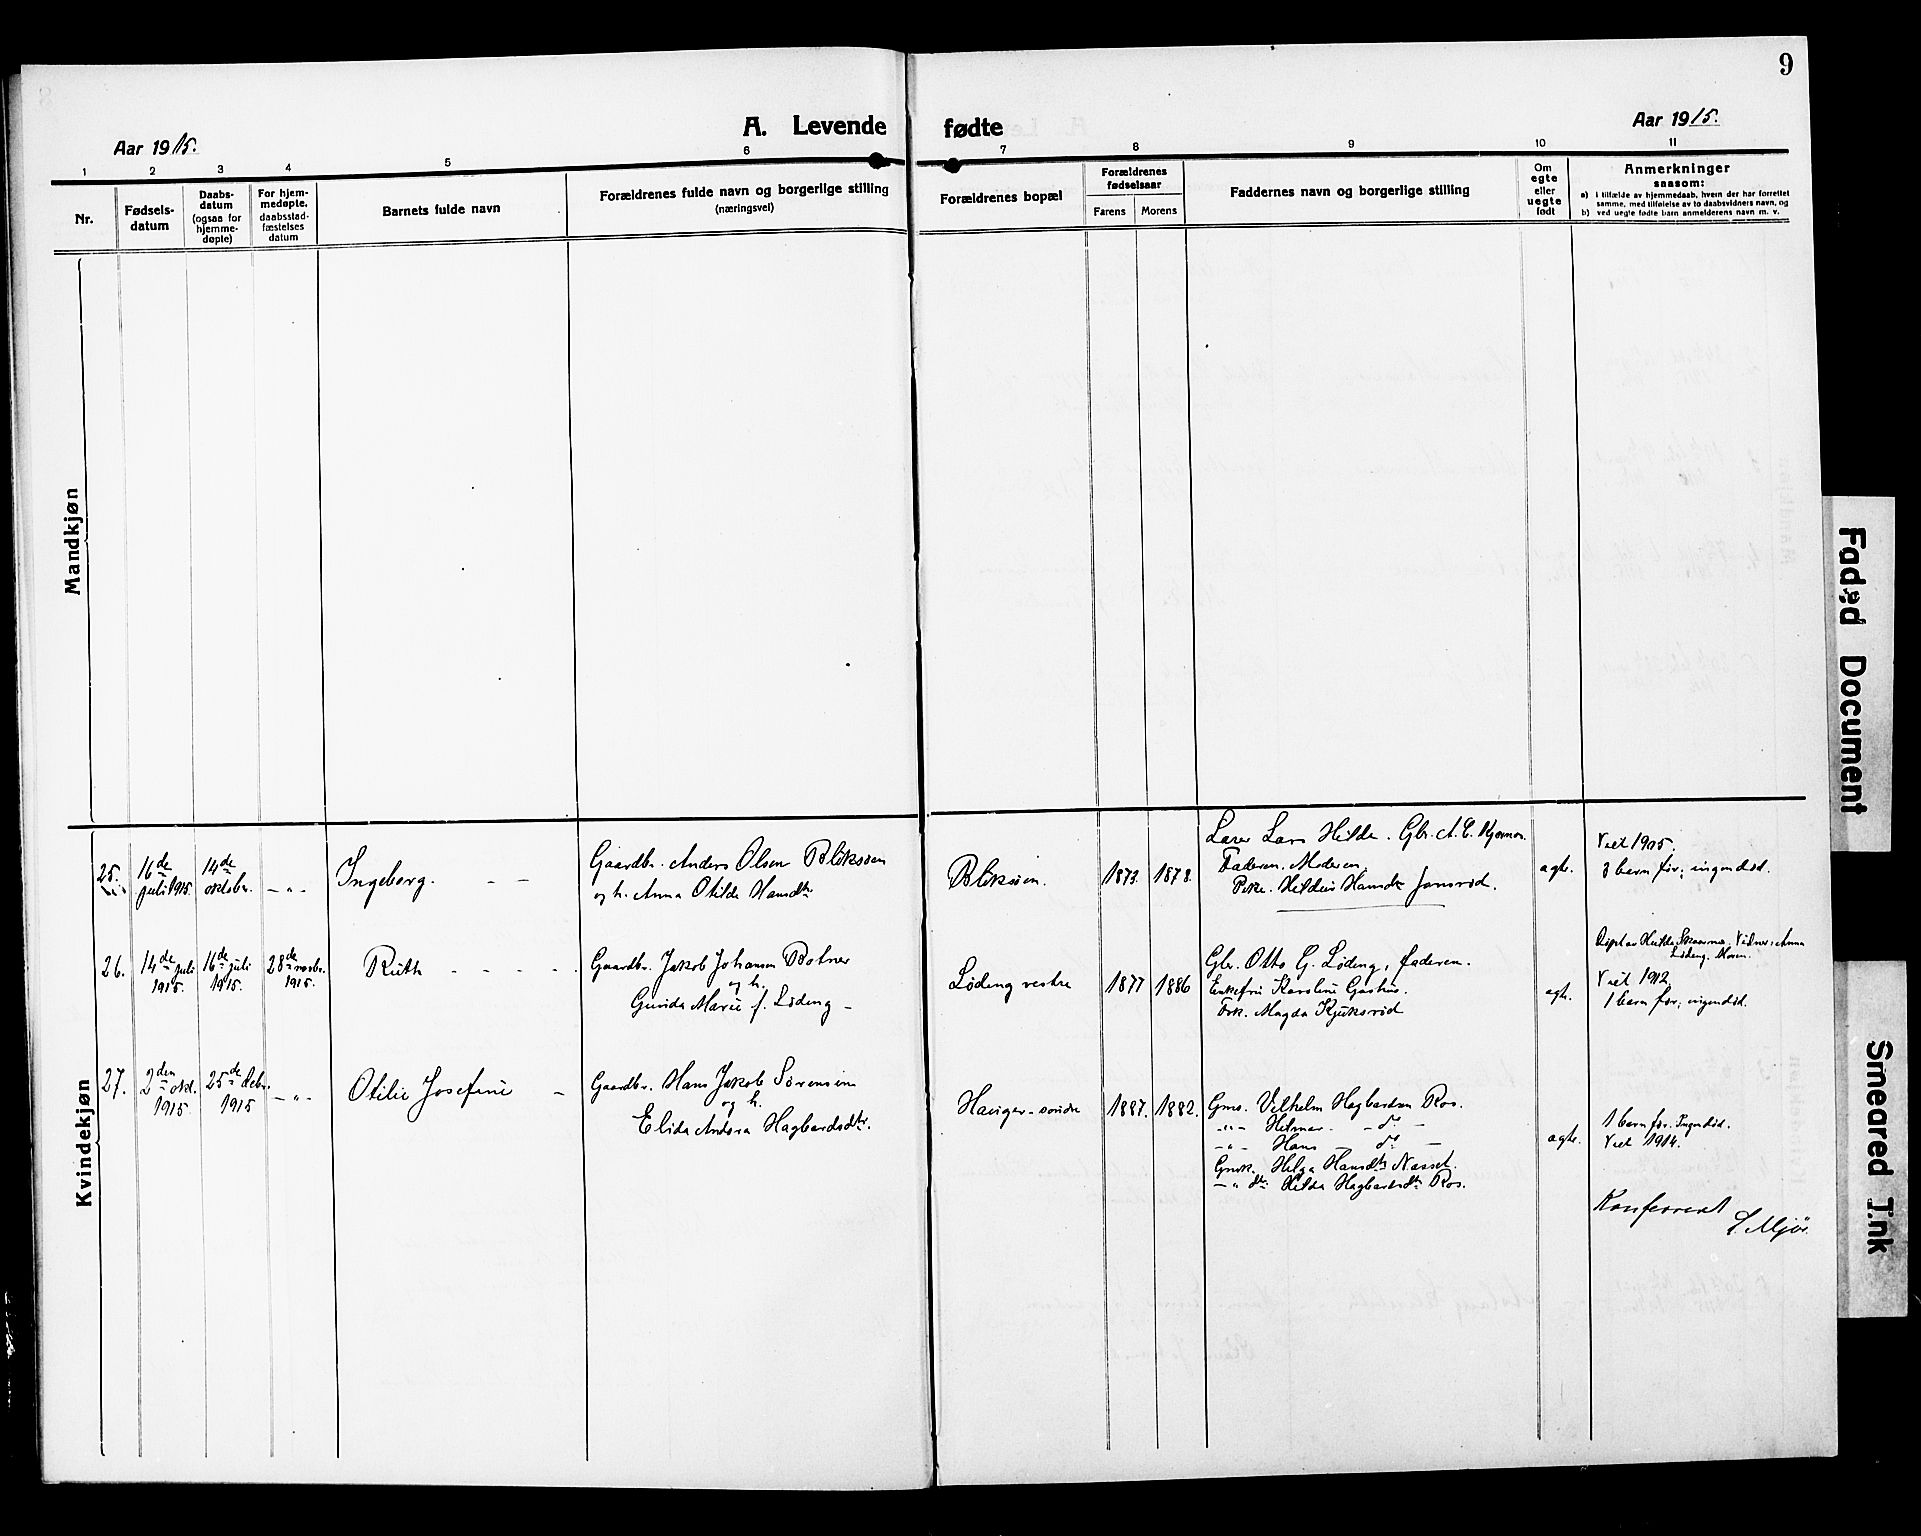 9
A. Levende fødte
Aar 1915.
Aar 1915.
1 2 3 4 5 6 7 8 9 10 11
Nr.
Fødsels-
datum
Daabs-
datum
(ogsaa for
hjemme-
døpte)
For hjem-
medøpte.
daabsstad-
fæstelses
datum
Barnets fulde navn
Forældrenes fulde navn og borgerlige stilling
(næringsvei)
Forældrenes bopæl
Forældrenes
fødselsaar
Farens Morens
Faddernes navn og borgerlige stilling
Om
egte
eller
uegte
født
Anmerkninger
saasom:
a) i tilfælde av hjemmedaab, hvem der har forrettet
samme, med tilføielse av to daabsvidners navn, og
b) ved uegte fødte barn anmelderens navn m. v.
Mandkjøn
Kvindekjøn
25.
16de
juli 1915.
14de
oktober.
- " -
Ingeborg. - -
Gaardbr. Anders Olsen Bliksøen
og h. Anna Otilde Hansdtr
Bliksøen.
1873. 1878.
Lærer Lars Hilde. Gbr. A. C.
Faderen. Moderen.
Pike. Hansdtr Jonsrød.
agte.
Viet 1905.
3 barn før; ingen død.
26.
14de juli
1915.
16de juli
1915.
28de novbr.
1915.
Ruth - - - -
Gaardbr. Jakob Johansen Botner
og h.
Gunda Marie f. Løding -
Løding vestre
1877 1886
Gbr. Otto G. Løding, faderen.
Enkefru Karoline Gashus.
Frk. Magda Kjuksrød
agte.
Døpt av Hulda Vidner: Anna
Løding,
Viet 1912
1 barn før; ingen død.
27.
2den okt.
1915.
25de debr.
1915
- " -
Otilie Josefine -
Gaardbr. Hans Jakob Sørensen
og h.
Elida Andora Hagbardsdtr.
Hauger - søndre
1887. 1882.
Gms. Vilhelm Hagbardsen Ros.
- " - Hilmar - do -
- " - Hans - do -
Gmk. Helga Hansdtr Næsset.
- " do: Hilda Hagbardsdtr Ros.
agte.
1 barn før. Ingen død.
Viet 1914.
Konfererert
S. Mjør.
Faded Document
Smeared Ink